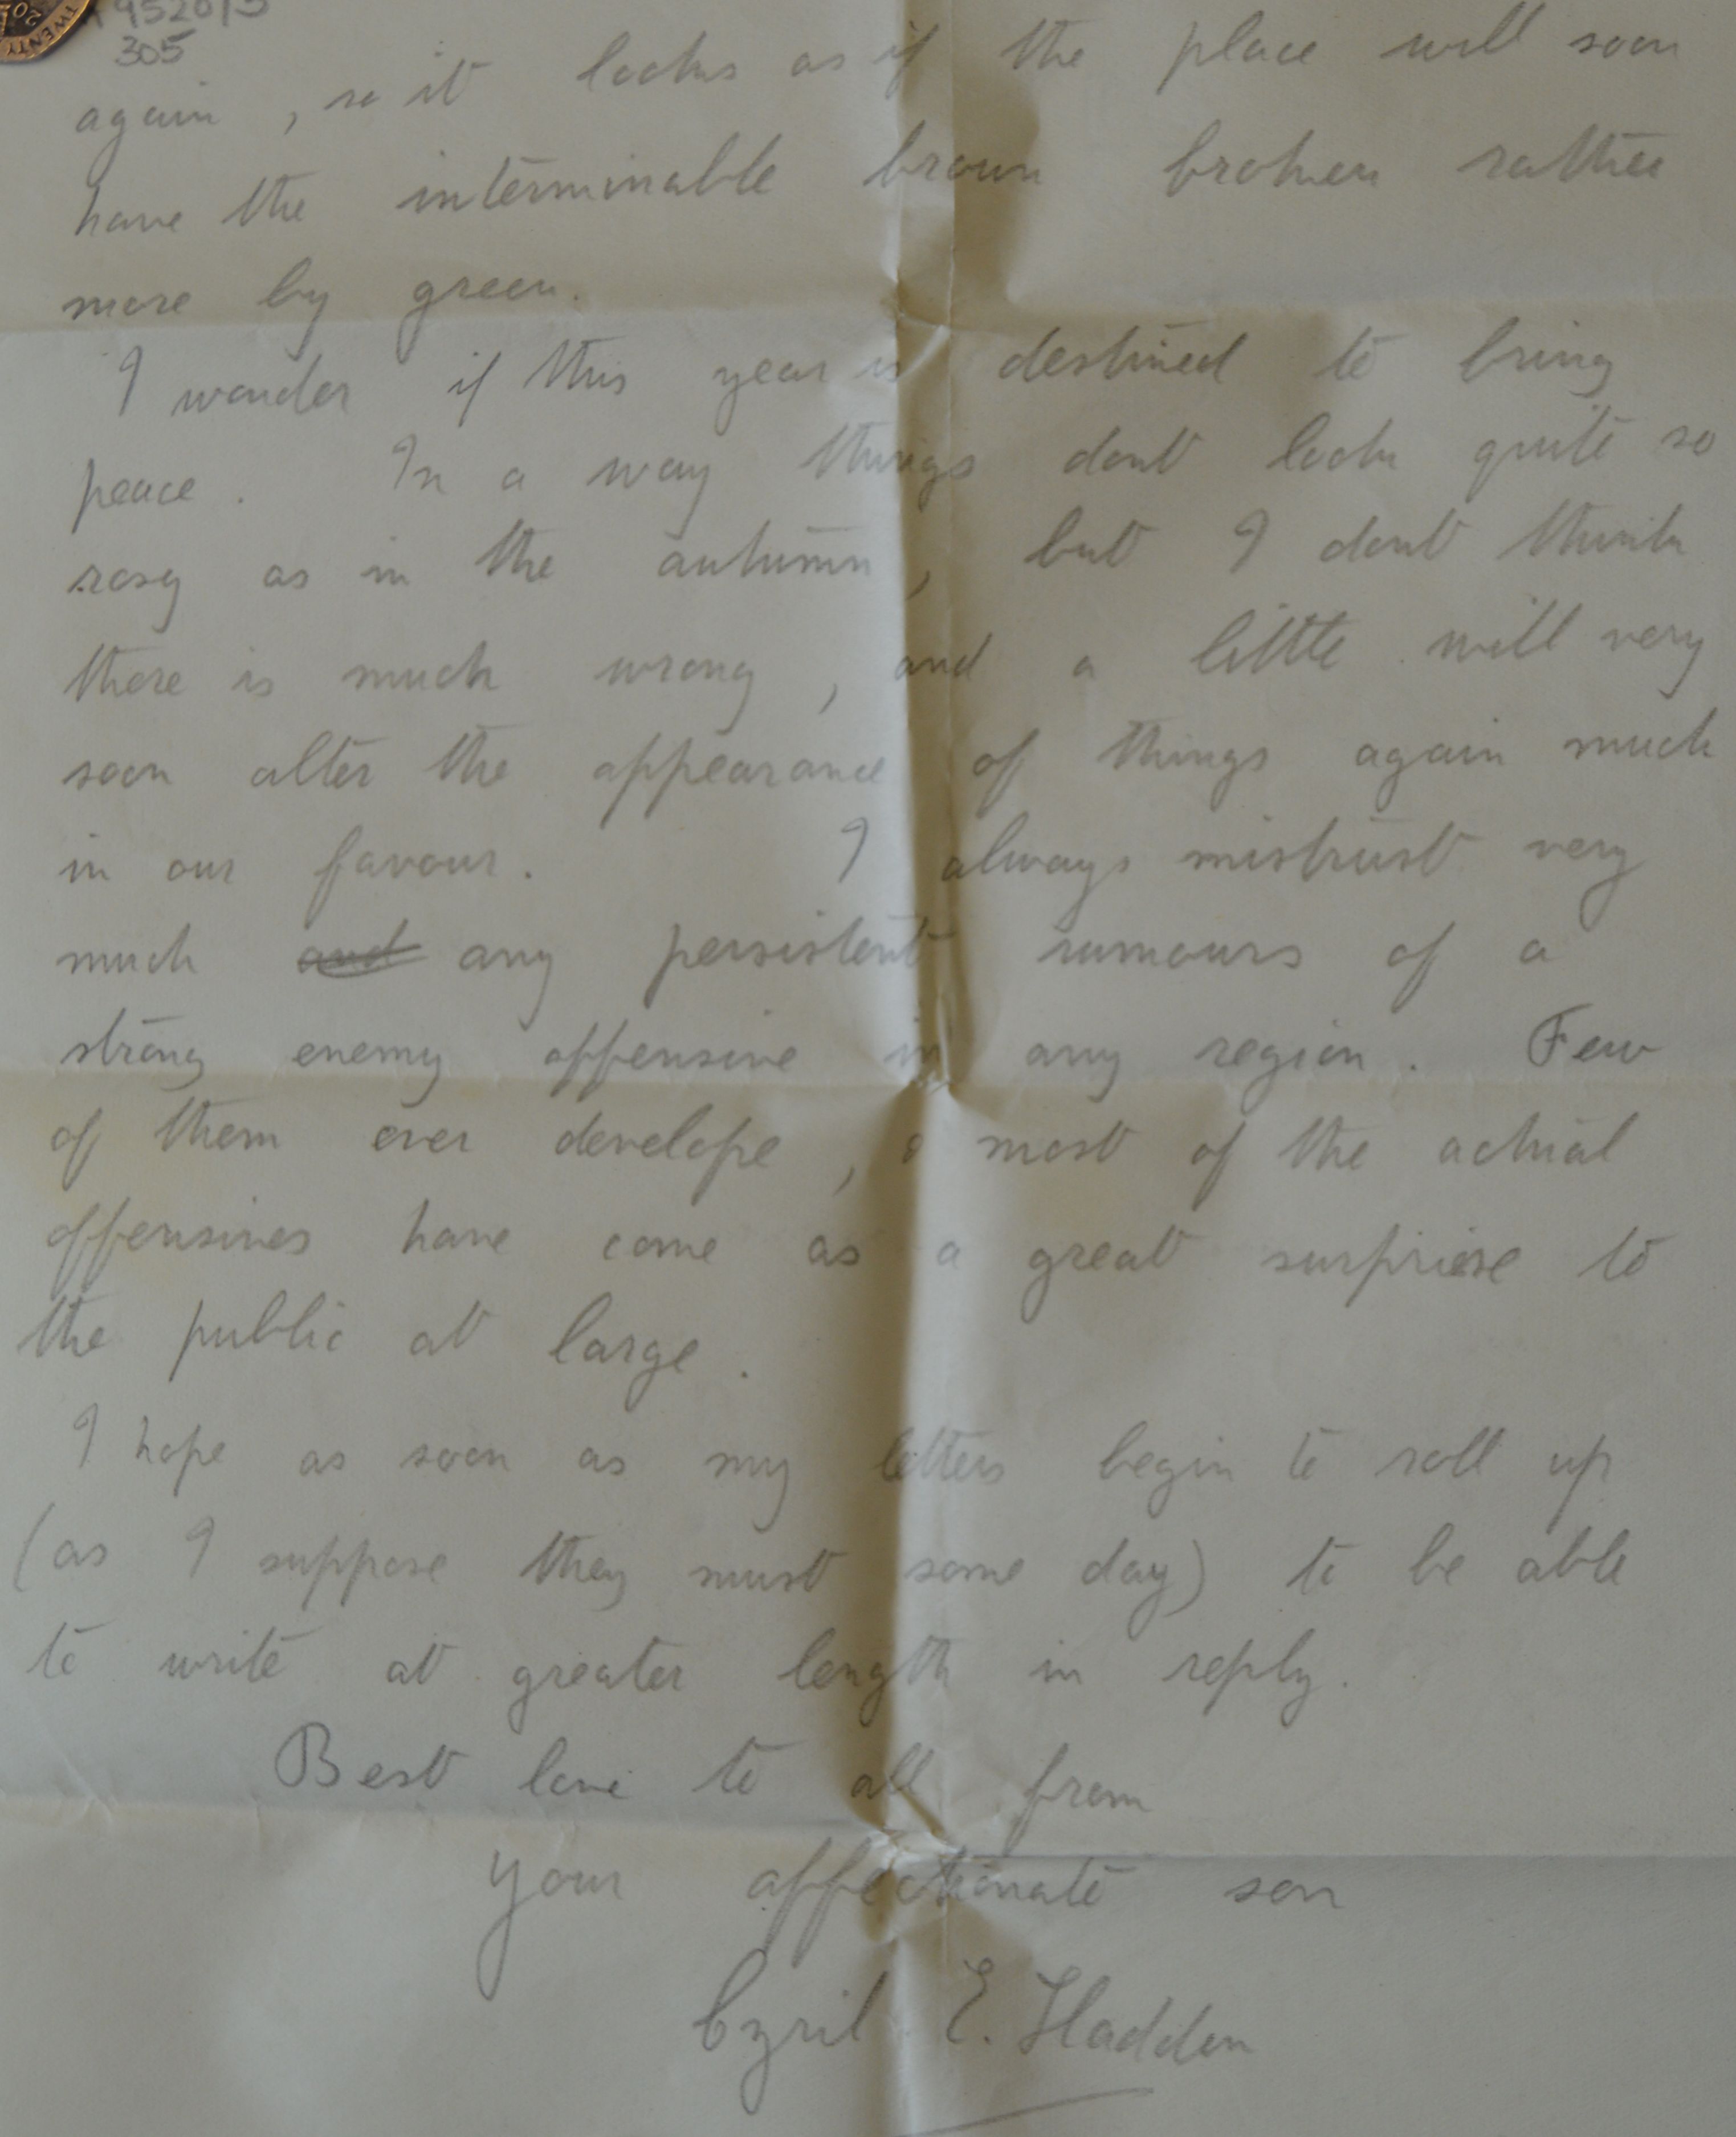 9520/3
305
again, so it looks as if the place will soon
have the interminable brown broken rather
more by green.
I wonder if this year is destined to bring
peace. In a way things dont look quite so
rosy as in the autumn, but I dont think
there is much wrong, and a little will very
soon alter the appearance of things again much
in our favour. I always mistrust very
much and any persistent rumours of a
strong enemy offensive in any region. Few
of them ever develope, & most of the actual
offensives have come as a great surprise to
the public at large.
I hope as soon as my letters begin to roll up
(as I suppose they must some day) to be able
to write at greater length in reply.
Best love to all from
your affectionate son
Cyril E. Hadden